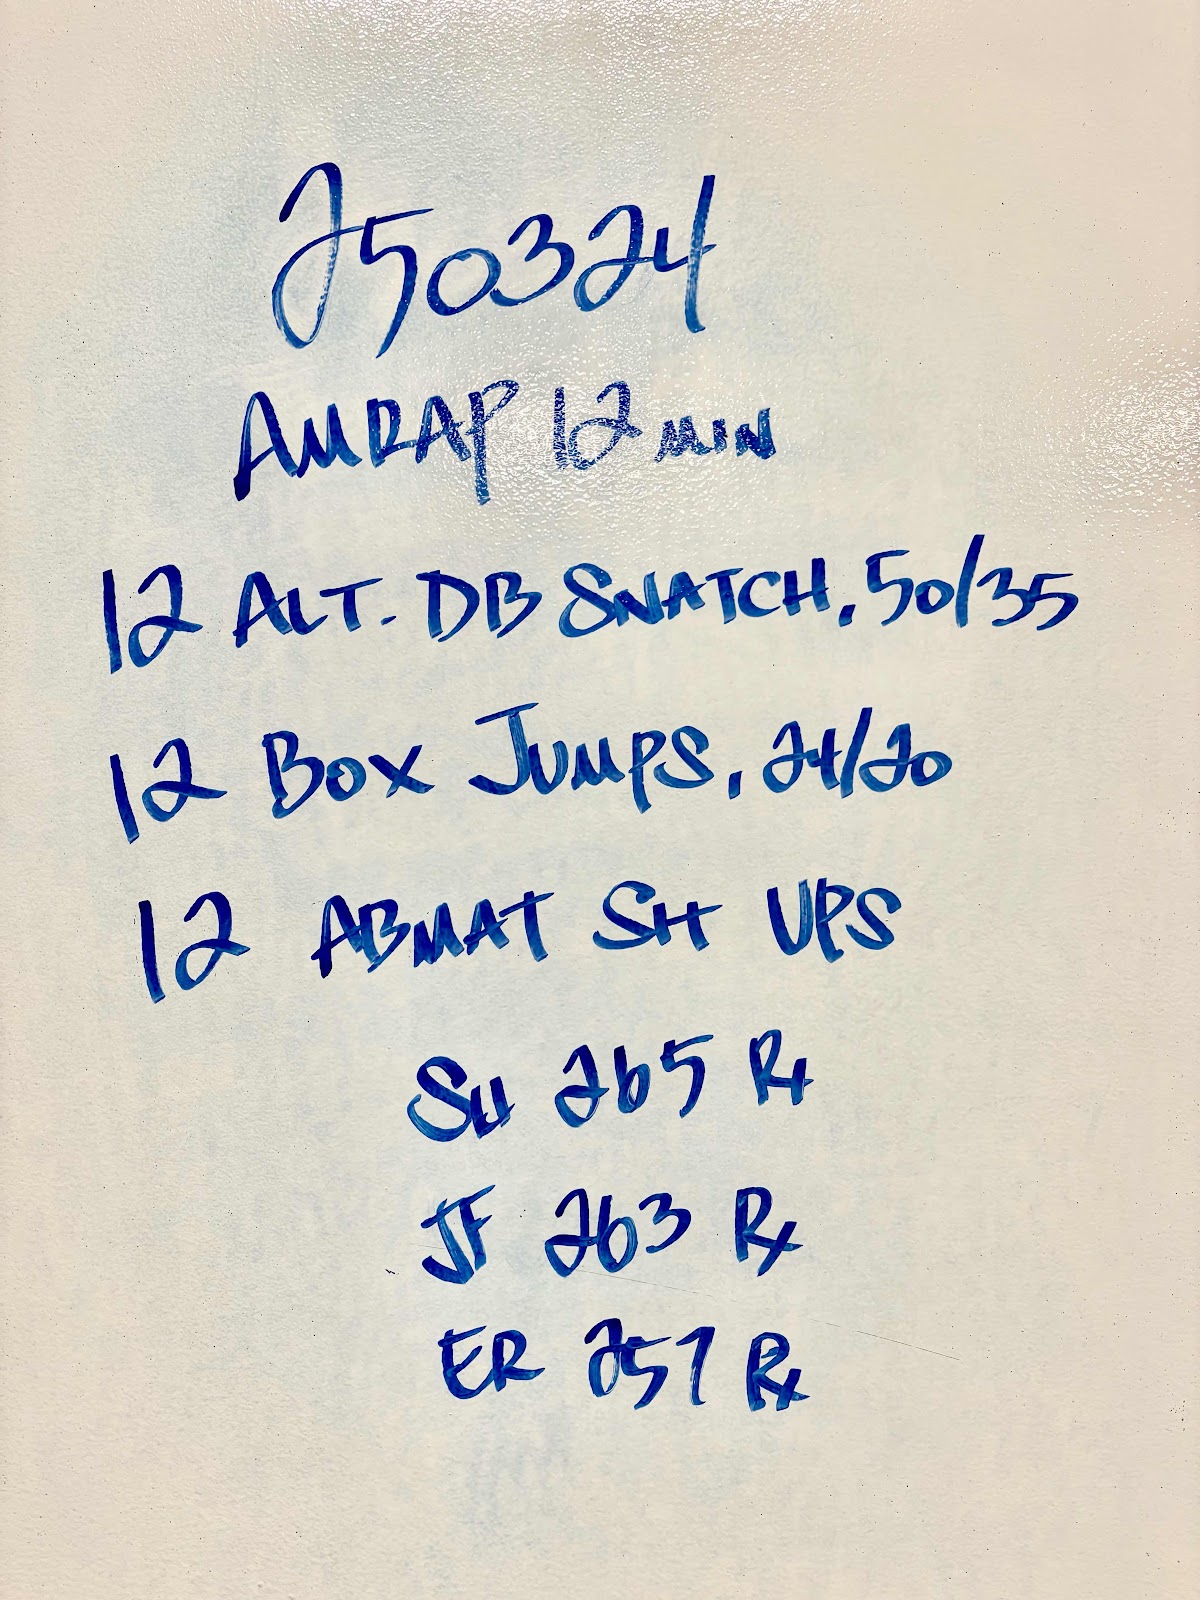 250324
AMRAP 12 MIN
12 ALT. DB SNATCH, 50/35
12 BOX JUMPS, 24/20
12 ABMAT SIT UPS
SH 265 Rx
JF 263 Rx
ER 257 Rx